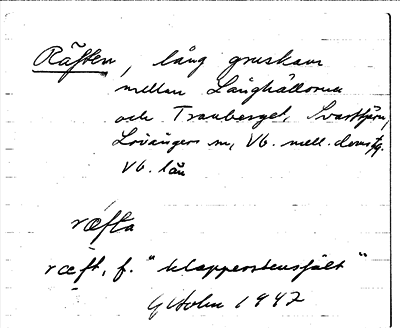 Räften, lång gruskam
mellan Långhällorna
och Tranberget, Svarttjärn,
Lövångers sn, Vb. mell. doms.
Vb. län
ræfta
ræft, f. "klapperstensfält"
G Holm 1942